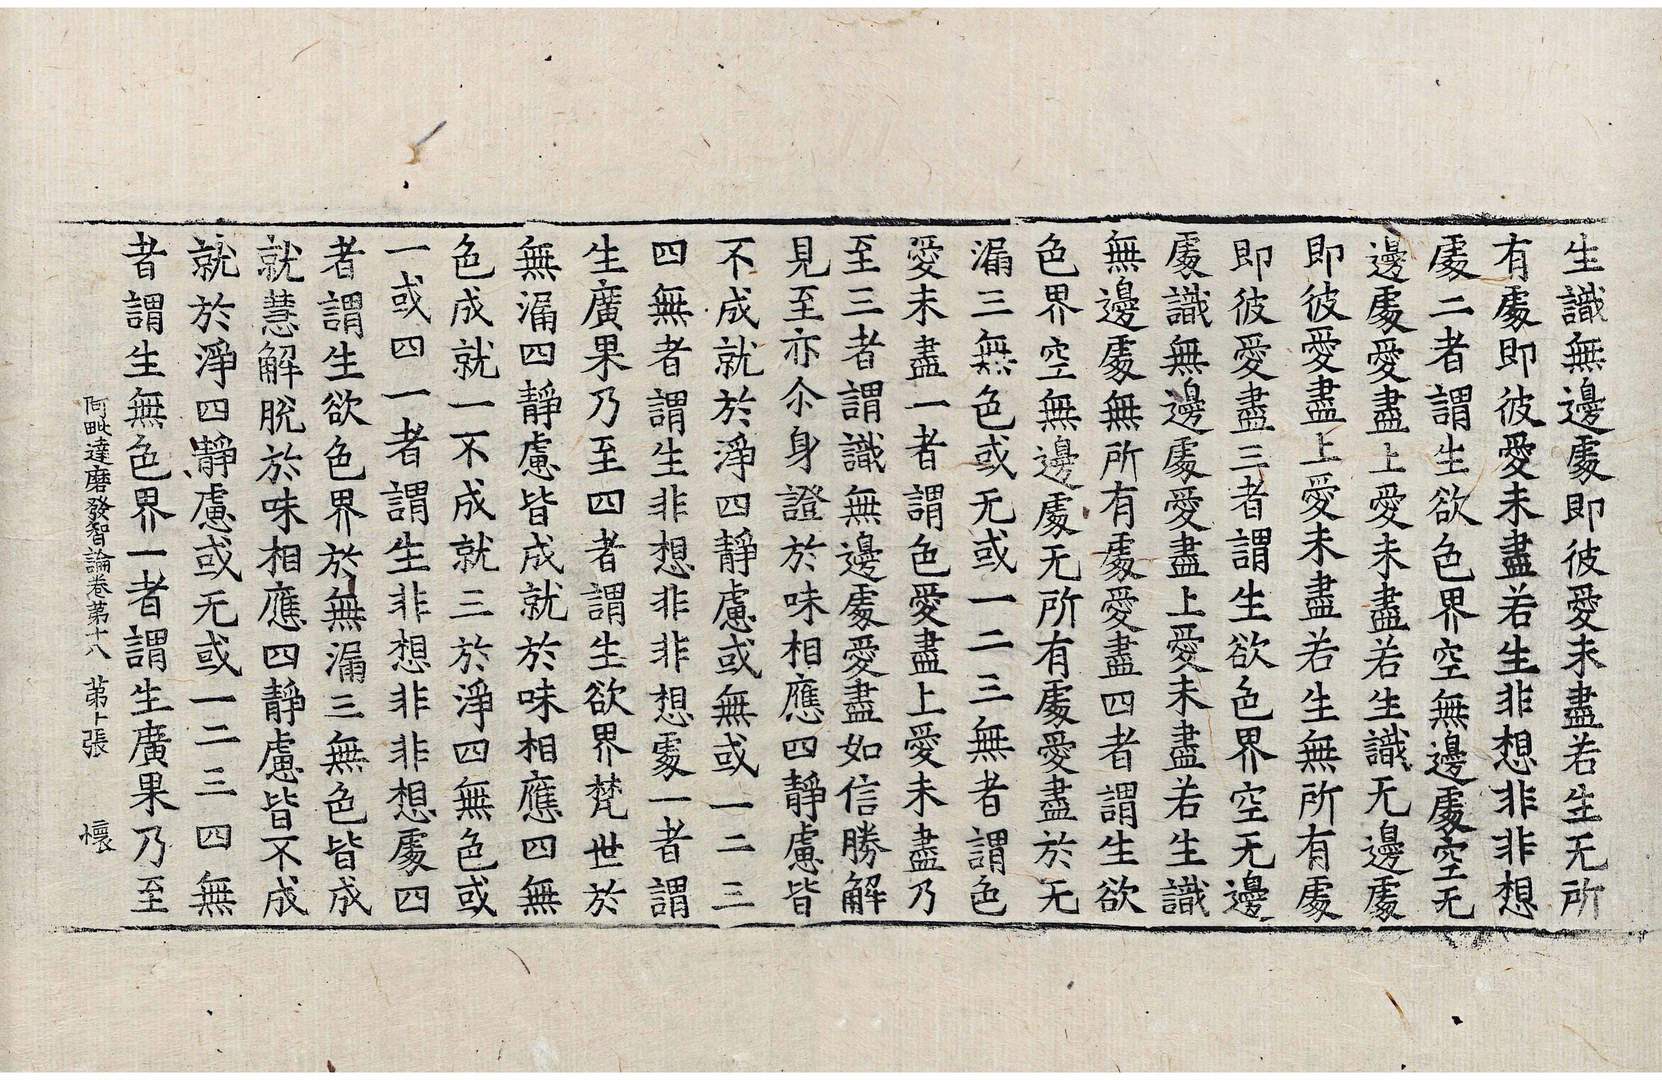 生識無邊處即彼愛未盡若生无所
有處即彼愛未盡若生非想非非想
處二者謂生欲色界空無邊處空无
邊處愛盡上愛未盡若生識无邊處
即彼愛盡上愛未盡若生無所有處
即彼愛盡三者謂生欲色界空无邊
處識無邊處愛盡上愛未盡若生識
無邊處無所有處愛盡四者謂生欲
色界空無邊處无所有處愛盡於无
漏三無色或无或一二三無者謂色
愛未盡一者謂色愛盡上愛未盡乃
至三者謂識無邊處愛盡如信勝解
見至亦尒身證於味相應四靜慮皆
不成就於淨四靜慮或無或一二三
四無者謂生非想非非想處一者謂
生廣果乃至四者謂生欲界梵世於
無漏四靜慮皆成就於味相應四無
色成就一不成就三於淨四無色或
一或四一者謂生非想非非想處四
者謂生欲色界於無漏三無色皆成
就慧解脫於味相應四靜慮皆不成
就於淨四靜慮或无或一二三四無
者謂生無色界一者謂生廣果乃至
阿毗達磨發智論卷第十八 第十張 懷